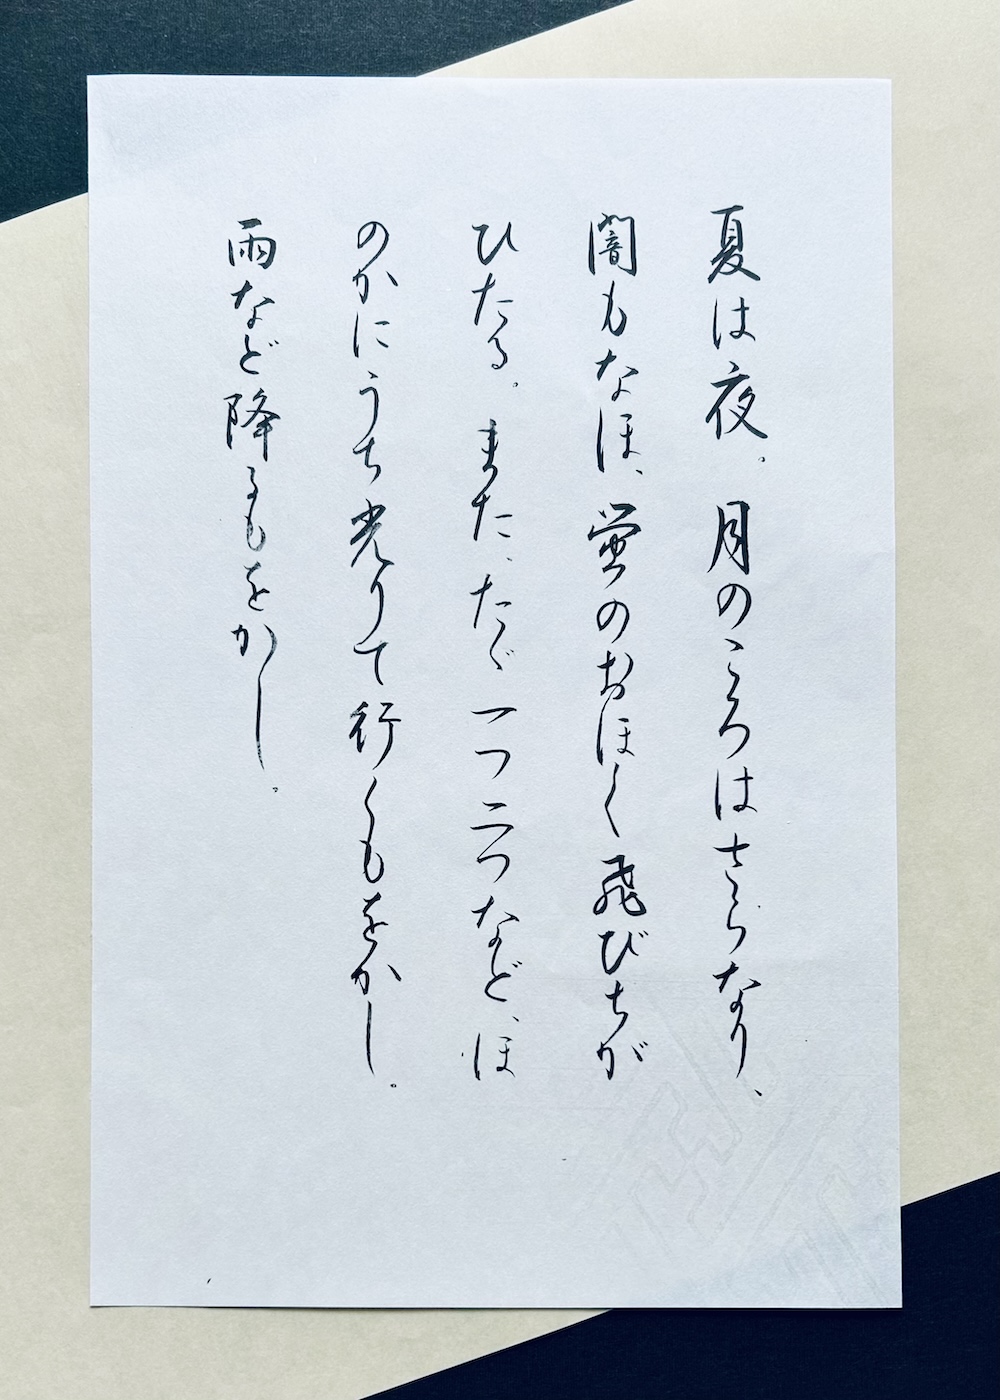 夏は夜。月のころはさらなり、
闇もなほ、蛍のおほく飛びちが
ひたる。また、たゞ一つ二つなど、ほ
のかにうち光りて行くもをかし。
雨など降るもをかし。